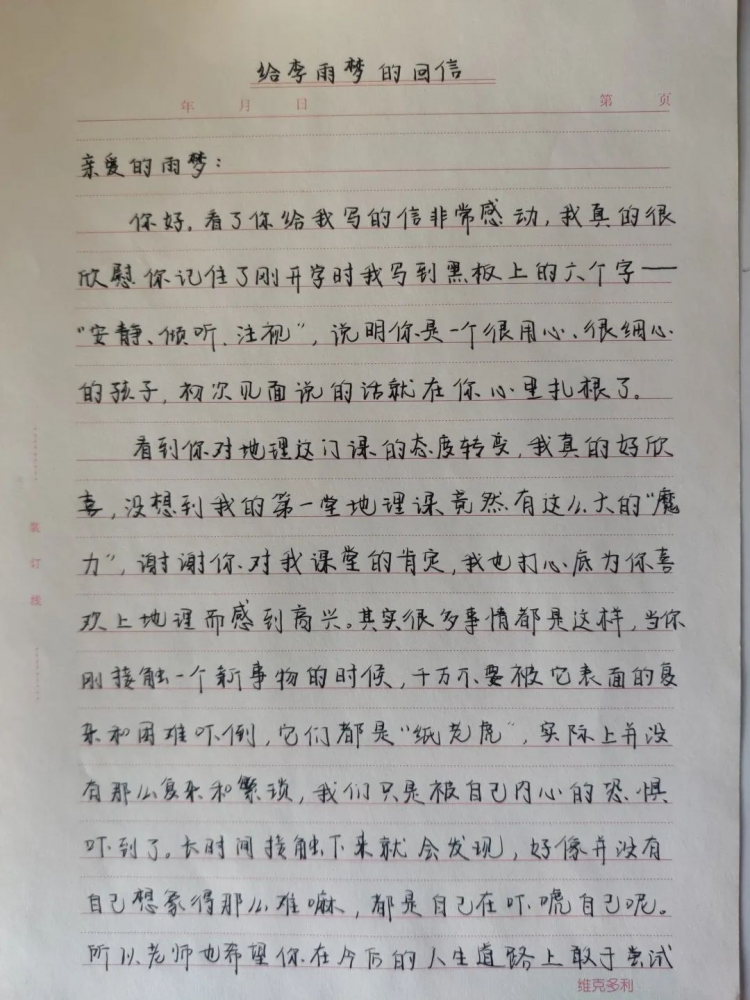 给李雨梦的回信
年 月 日 第 页
亲爱的雨梦：
你好。看了你给我写的信非常感动，我真的很
欣慰你记住了刚开学时我写到黑板上的六个字——
“安静、倾听、注视”，说明你是一个很用心、很细心
的孩子，初次见面说的话就在你心里扎根了。
看到你对地理这门课的态度转变，我真的好欣
喜，没想到我的第一堂地理课竟然有这么大的“魔
力”，谢谢你对我课堂的肯定，我也打心底为你喜
欢上地理而感到高兴。其实很多事情都是这样，当你
刚接触一个新事物的时候，千万不要被它表面的复
杂和困难吓倒，它们都是“纸老虎”，实际上并没
有那么复杂和繁琐，我们只是被自己内心的恐惧
吓到了。长时间接触下来就会发现，好像并没有
自己想象得那么难嘛，都是自己在吓唬自己呢。
所以老师也希望你在今后的人生道路上敢于尝试
装订线
维克多利